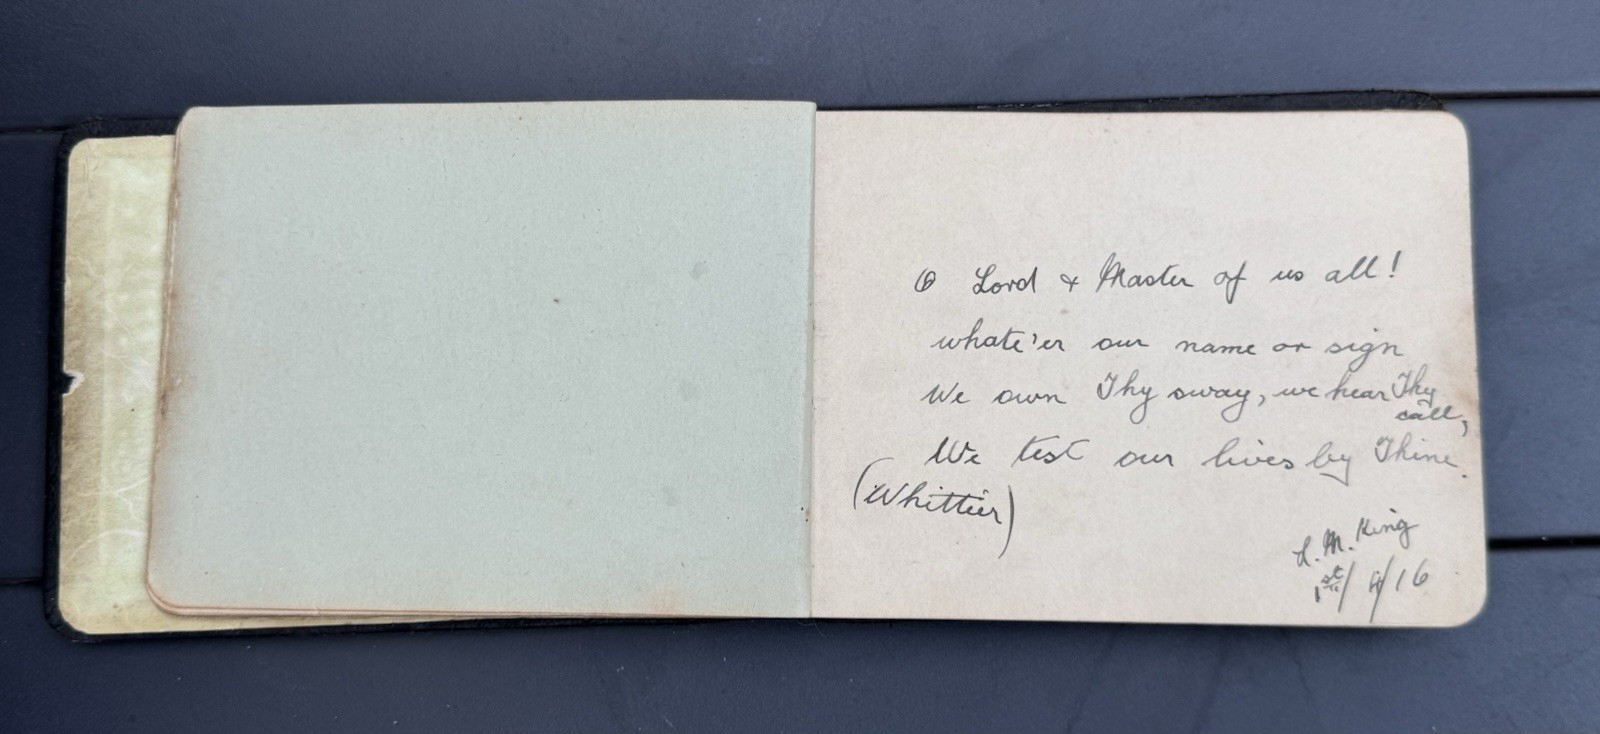 O Lord & Master of us all!
whate'er our name or sign
We own Thy sway, we hear Thy
call,
We test our lives by Thine.
(Whittier)
L. M. King
1st/4/16